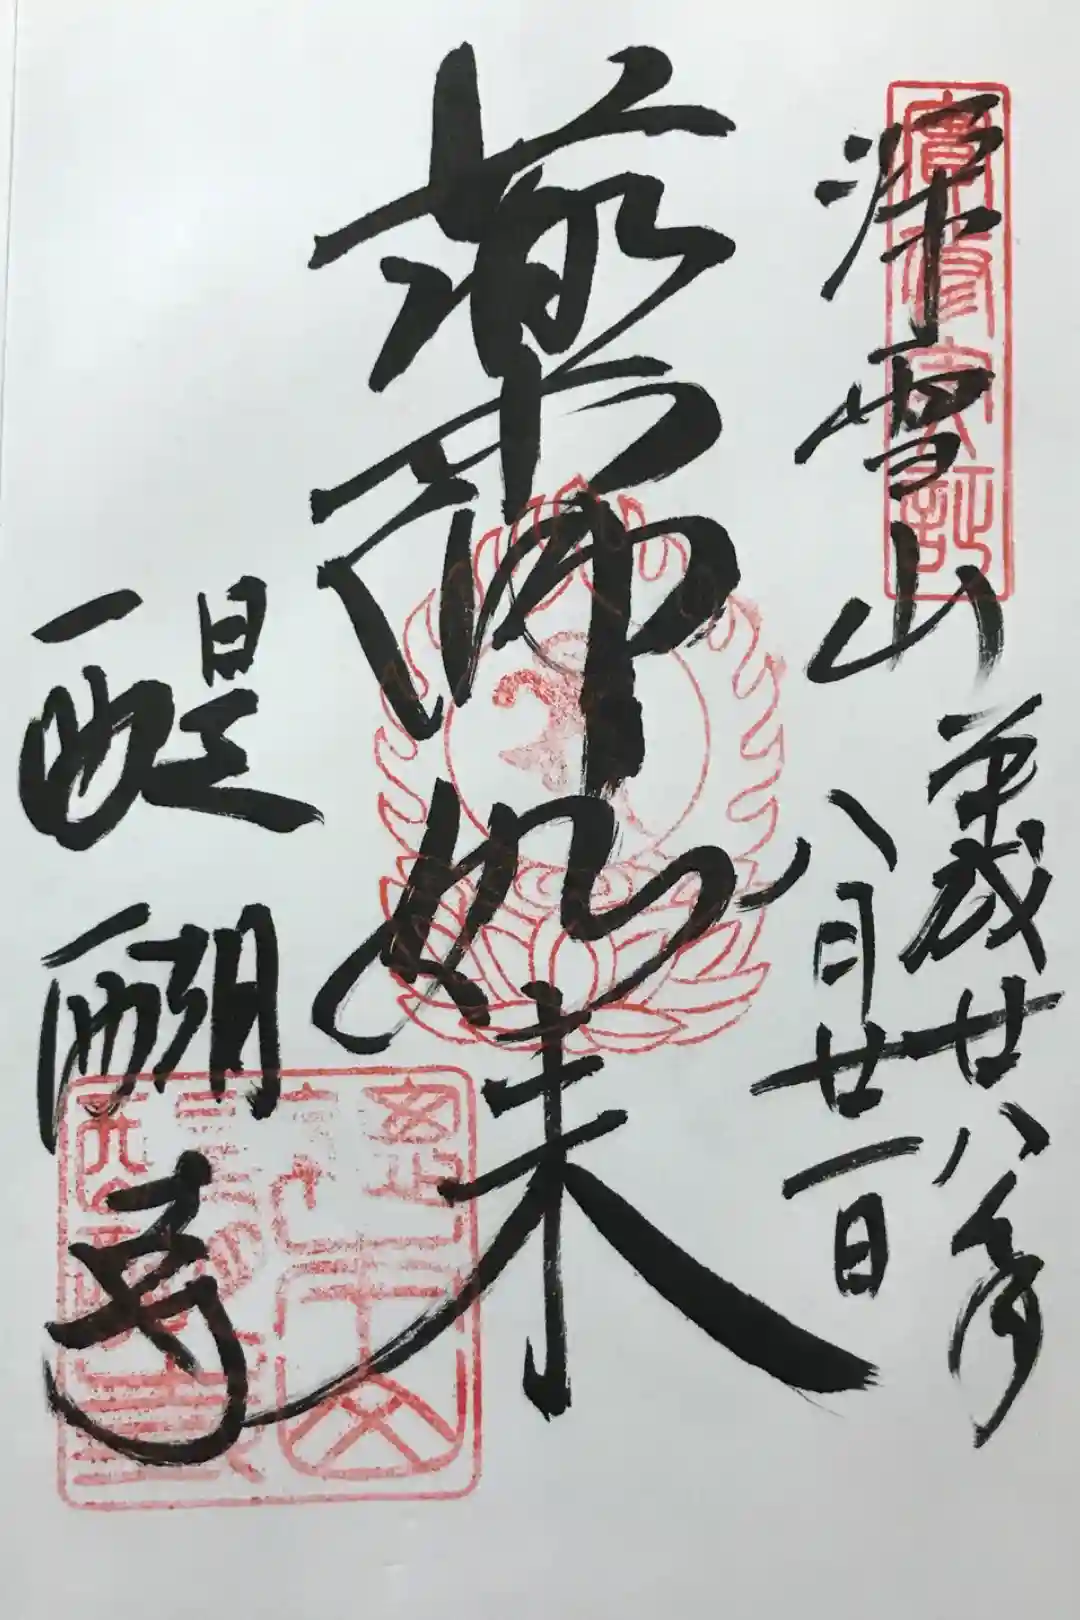 實修實証
深雪山
平成廿八年
八月廿一日
薬師如来
醍醐寺